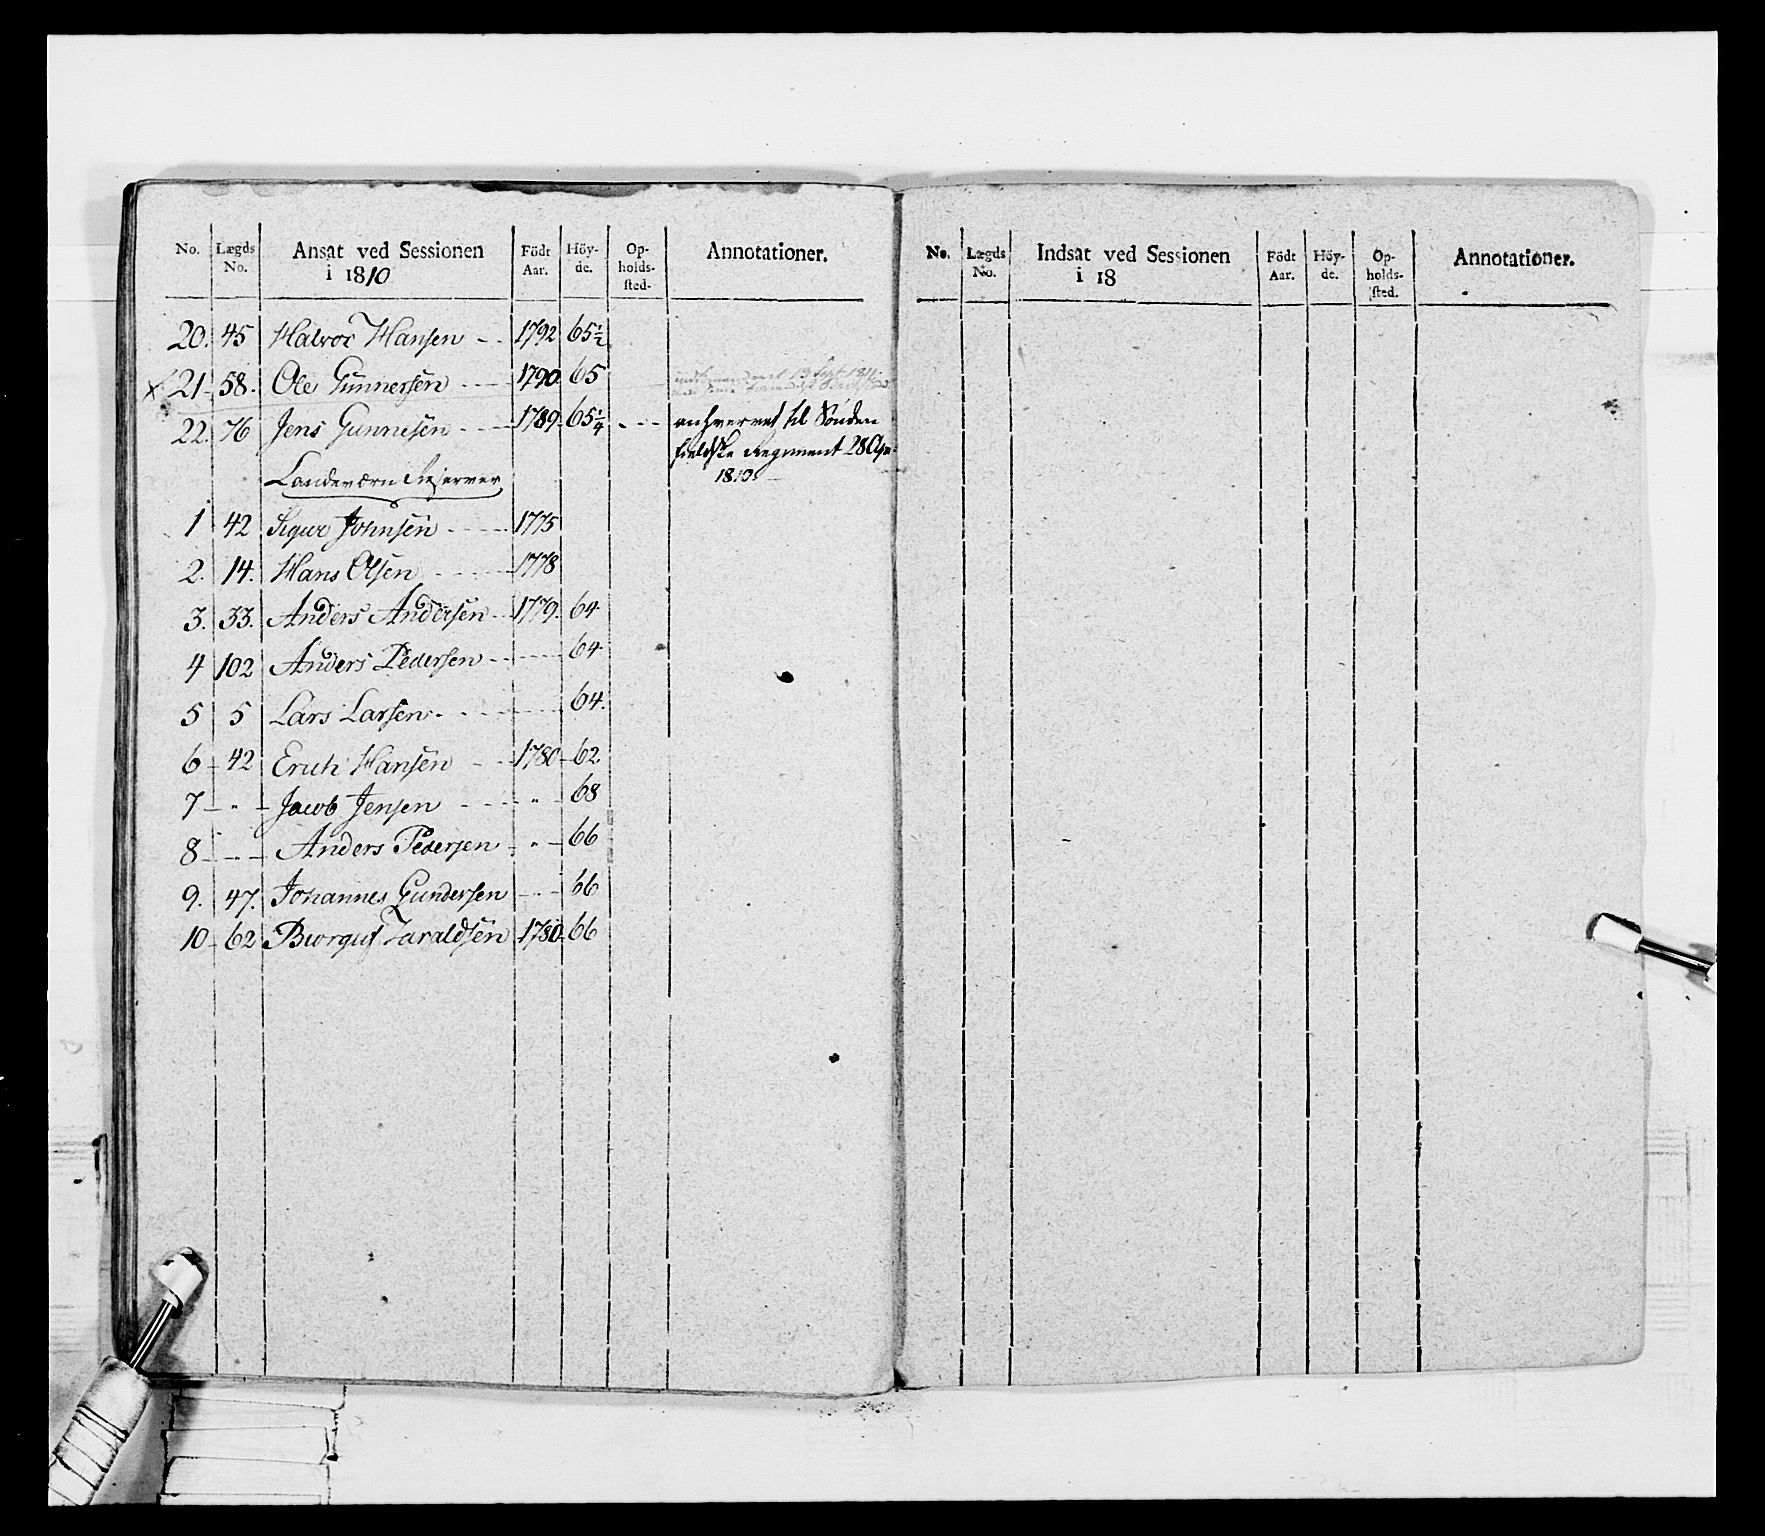 No. Lægds No. Ansat ved Sessionen i 1810 Födt Aar. Höy- de. Op- holds- sted. Annotationer.
20. 45 Halvor Hansen 1792 65½
x 21 58. Ole Gunnersen 1790 65 13 Sept 1811
22. 76 Jens Gunnesen 1789 65¼ anhvervet til Sönden
fieldske Regiment 28
1810
Landeværn Reserver
1 42 Sigur Johnsen 1775
2. 14. Hans Olsen 1778
3. 33. Anders Andersen 1779. 64
4 102 Anders Pedersen 64
5 5 Lars Larsen 64.
6 42 Erich Hansen 1780 62
7 " Jacob Jensen " 68
8 " Anders Pedersen " 66
9. 47. Johannes Gundersen 66
10 62 Taraldsen 1780 66
No. Lægds No. Indsat ved Sessionen i 18 Födt Aar. Höy- de. Op- holds- sted. Annotationer.